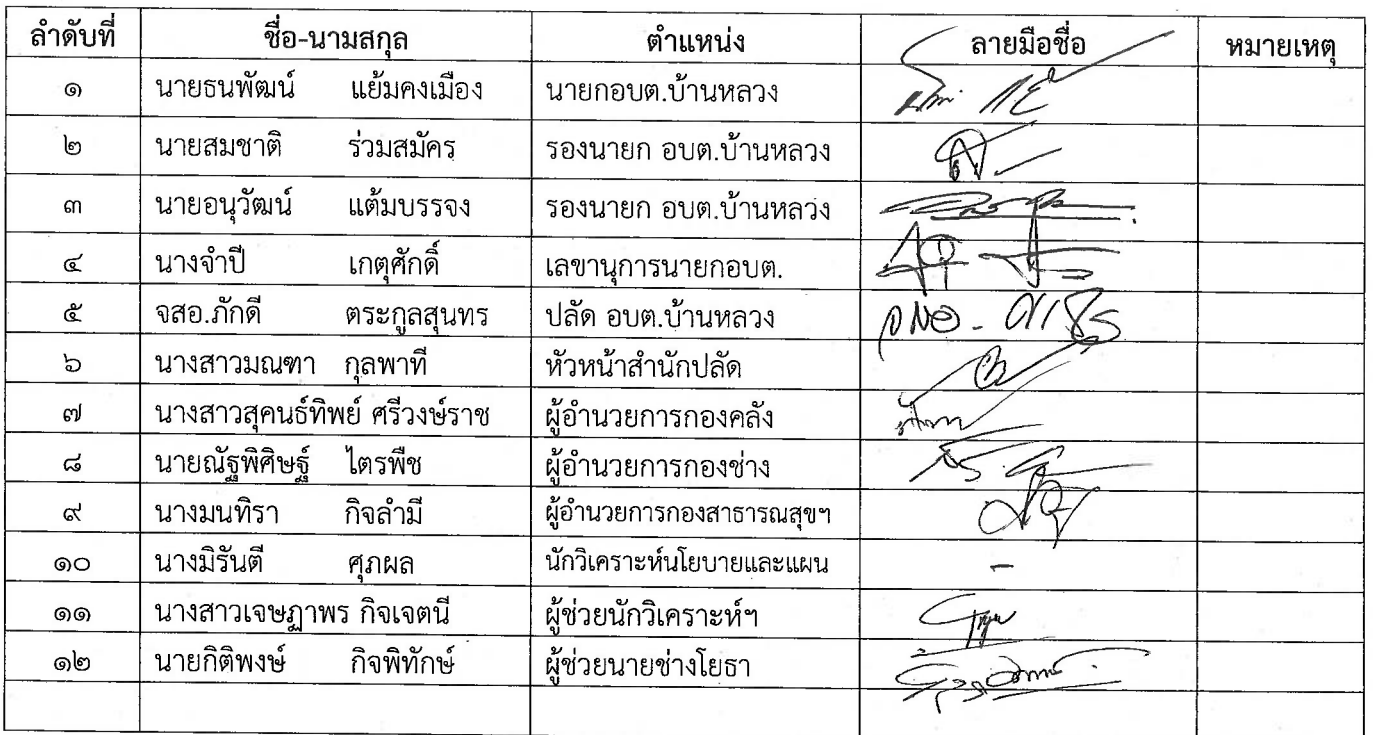 ลำดับที่ ชื่อ-นามสกุล ตำแหน่ง ลายมือชื่อ หมายเหตุ
๑ นายธนพัฒน์ แย้มคงเมือง นายกอบต.บ้านหลวง
๒ นายสมชาติ ร่วมสมัคร รองนายก อบต.บ้านหลวง
๓ นายอนุวัฒน์ แต้มบรรจง รองนายก อบต.บ้านหลวง
๔ นางจำปี เกตุศักดิ์ เลขานุการนายกอบต.
๕ จสอ.ภักดี ตระกูลสุนทร ปลัด อบต.บ้านหลวง
๖ นางสาวมณฑา กุลพาที หัวหน้าสำนักปลัด
๗ นางสาวสุคนธ์ทิพย์ ศรีวงษ์ราช ผู้อำนวยการกองคลัง
๘ นายณัฐพิศิษฐ์ ไตรพืช ผู้อำนวยการกองช่าง
๙ นางมนทิรา กิจลำมี ผู้อำนวยการกองสาธารณสุขฯ
๑๐ นางมิรันตี ศุภผล นักวิเคราะห์นโยบายและแผน -
๑๑ นางสาวเจษฎาพร กิจเจตนี ผู้ช่วยนักวิเคราะห์ฯ
๑๒ นายกิติพงษ์ กิจพิทักษ์ ผู้ช่วยนายช่างโยธา